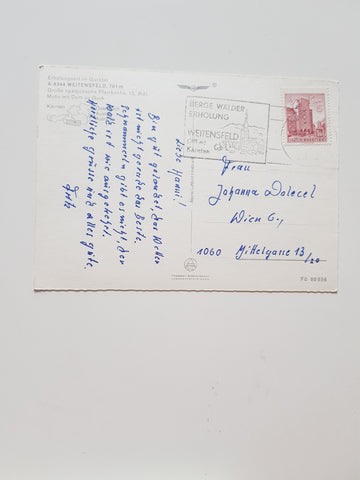 Erholungsort im Gurktal
A-9344 WEITENSFELD, 704 m
Große spätgotische Pfarrkirche, 15. Jhdt.
Kärnten
BERGE WÄLDER
ERHOLUNG
WEITENSFELD
Kärnten
Liebe Hanni!
Bin gut gelandet, das Wetter
ist nicht gerade das Beste,
Schwammerln gibt es nicht, der
Wald ist wie ausgekehrt.
Herzliche Grüsse und alles gute,
Fritz
Frau
Johanna Dolecel
Wien 6.,
1060 Mittelgasse 13/20